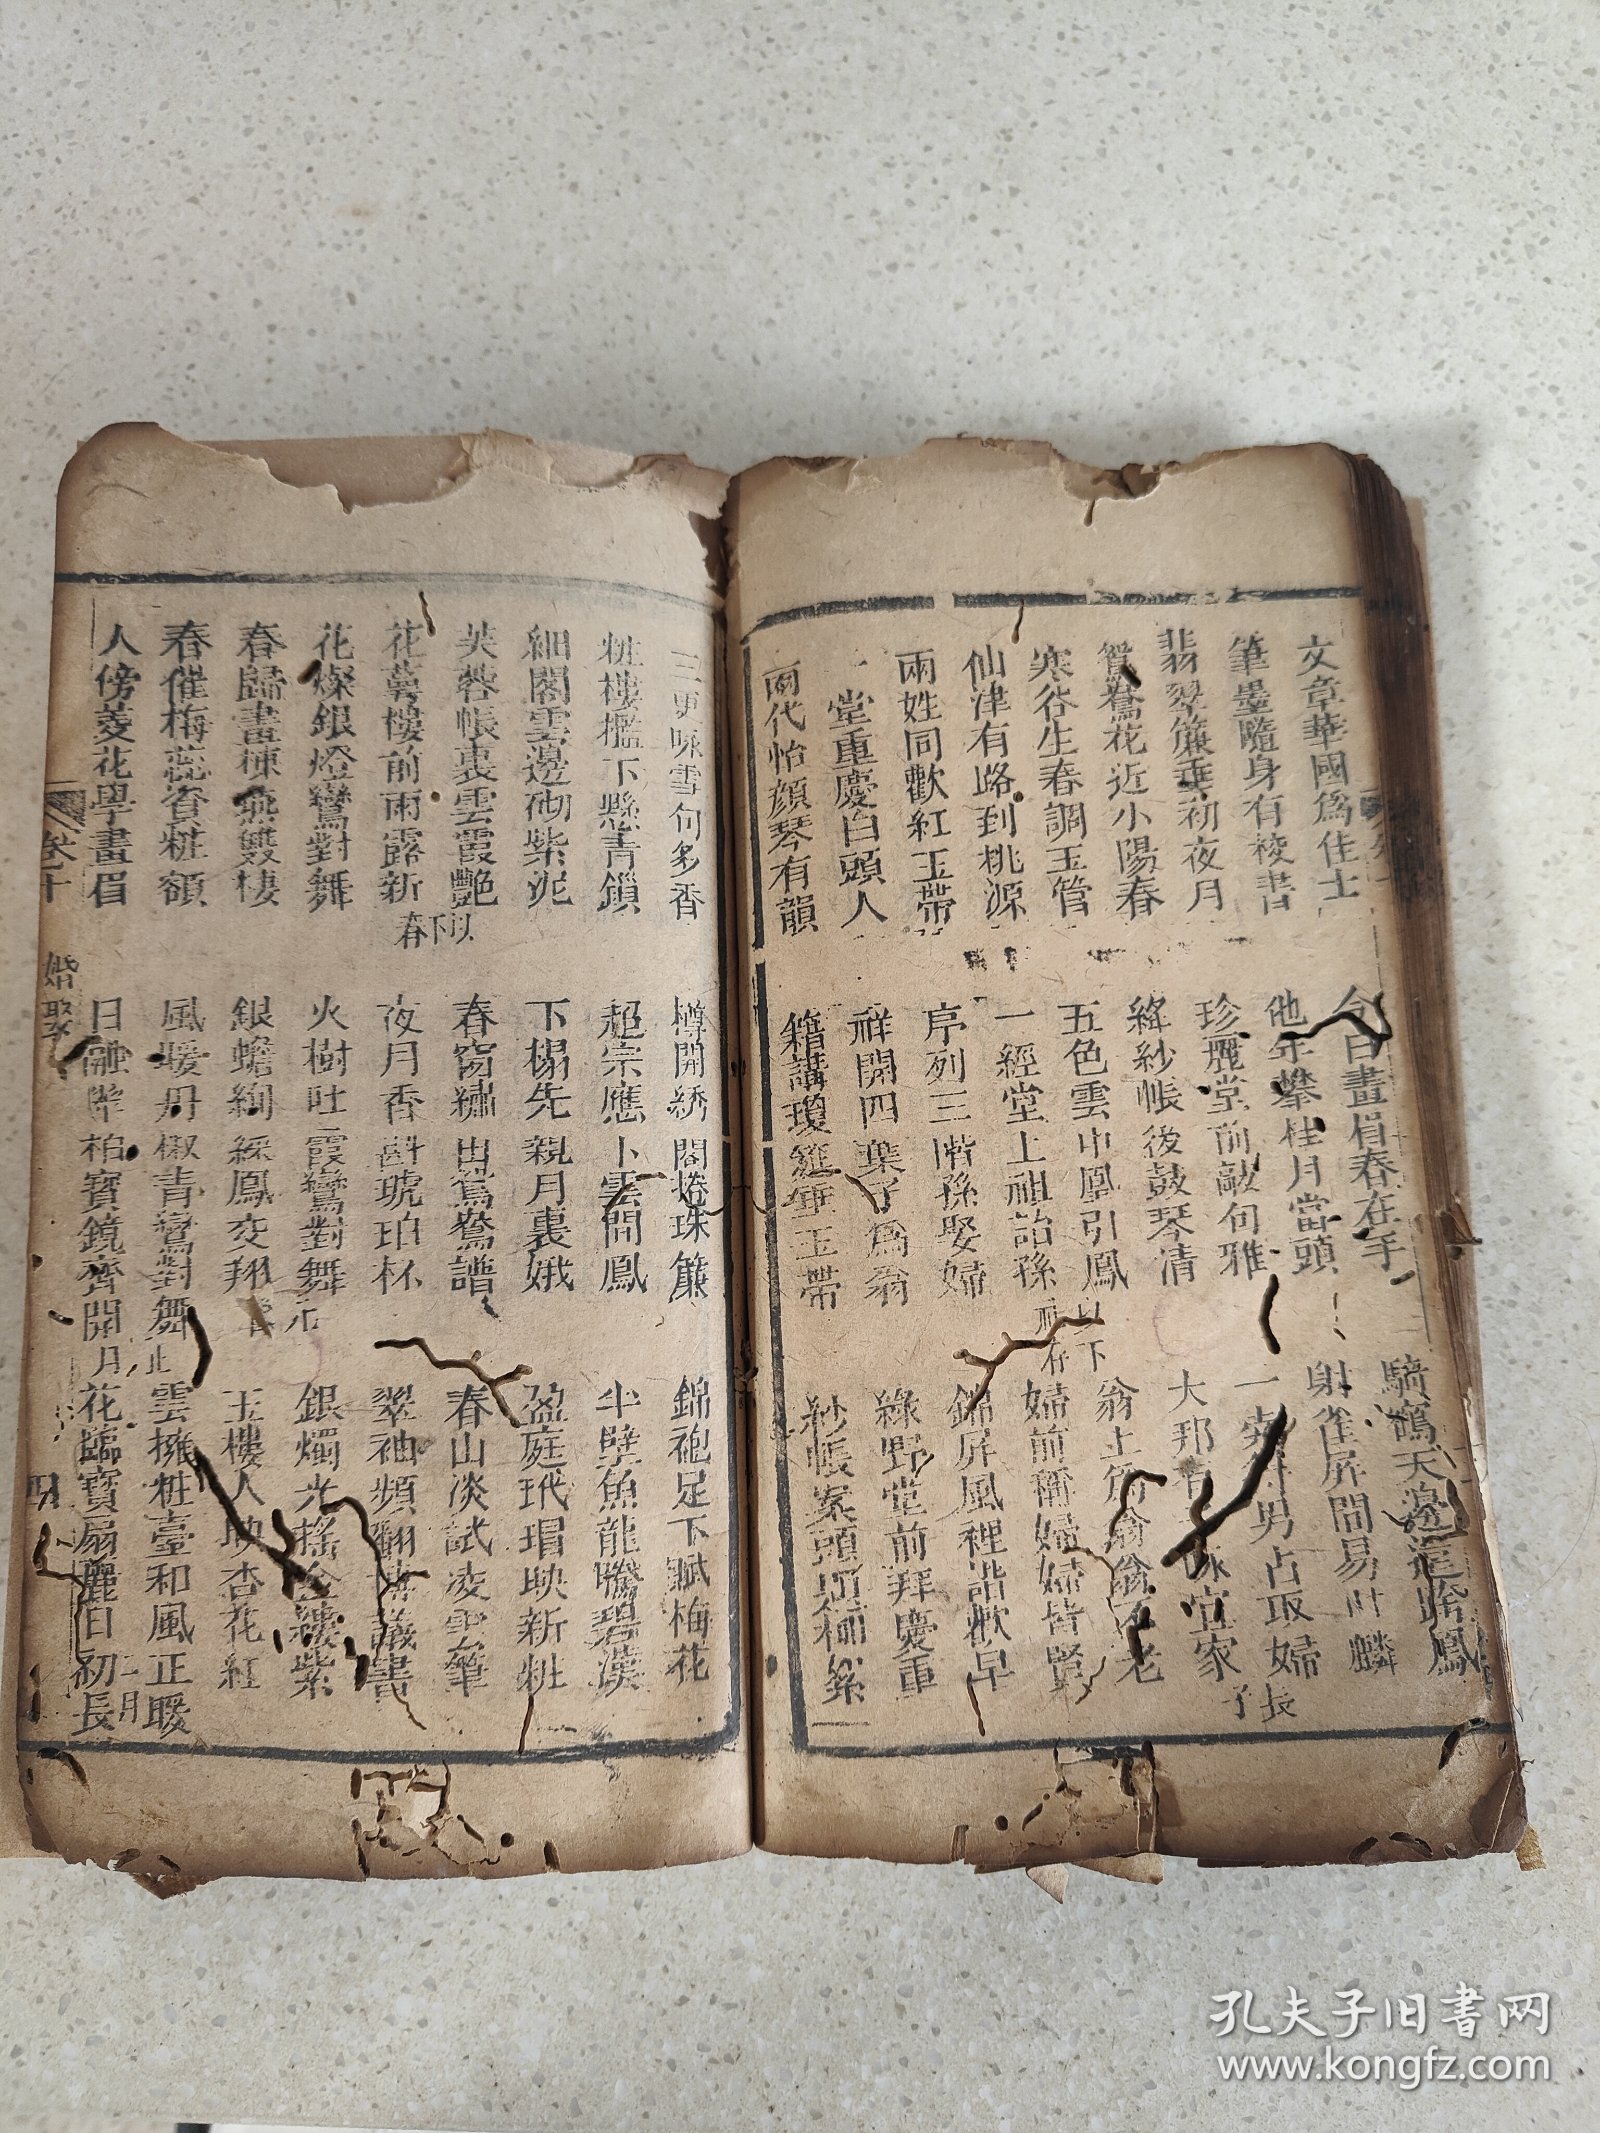 文章華國為佳士
筆墨隨身有稜書
翡翠簾垂初夜月
鴛鴦花近小陽春
寒谷生春調玉管
仙津有路到桃源
兩姓同歡紅玉帶
一堂重慶白頭人
兩代怡顏琴有韻
今日畫眉春在手
他年攀桂月當頭
珍麗堂前敲句雅
絳紗帳後鼓琴清
五色雲中凰引鳳
以下
一經堂上祖詒孫
序列三階孫娶婦
祥開四葉子為翁
籍講瓊筵垂玉帶
騎鶴天邊這跨鳳
射雀屏間易叶麟
男占取婦
長子
大邦
宜家
翁上為翁翁不老
婦前稱婦婦皆賢
錦屏風裡諧歡早
綠野堂前拜慶重
紗帳案頭
三更咏雪句多香
粧樓檻下懸青鎖
細閣雲邊砌紫泥
芙蓉帳裏雲霞艷
花萼樓前雨露新
以下春
花燦銀燈鸞對舞
春歸畫棟燕雙棲
春催梅蕊資粧額
人傍菱花學畫眉
樽開綉閣捲珠簾
超宗應卜雲間鳳
下榻先親月裏娥
春窗繡出鴛鴦譜
夜月香斟琥珀杯
火樹吐霞鸞對舞
銀蟾絢綵鳳交翔
風暖丹椒青鸞對舞
日融階柏寶鏡齊開
錦袍足下賦梅花
半壁魚龍騰碧漢
盈庭玳瑁映新粧
春山淡試凌雲筆
翠袖頻翻博議書
銀燭光搖金縷紫
玉樓人映杏花紅
雲擁粧臺和風正暖
花臨寶扇麗日初長
二月
卷十
婚娶
四
孔夫子旧书网
www.kongfz.com